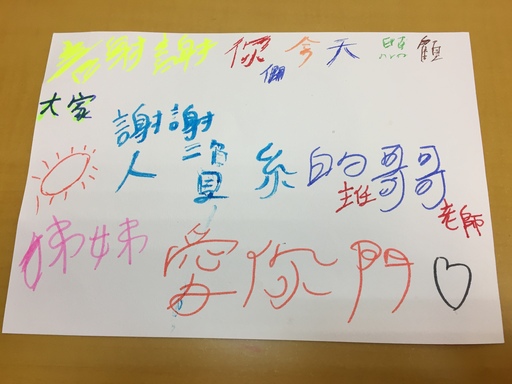 謝謝你們今天照顧
大家
謝謝
人資系的哥哥
主任
老師
姊妹愛你門